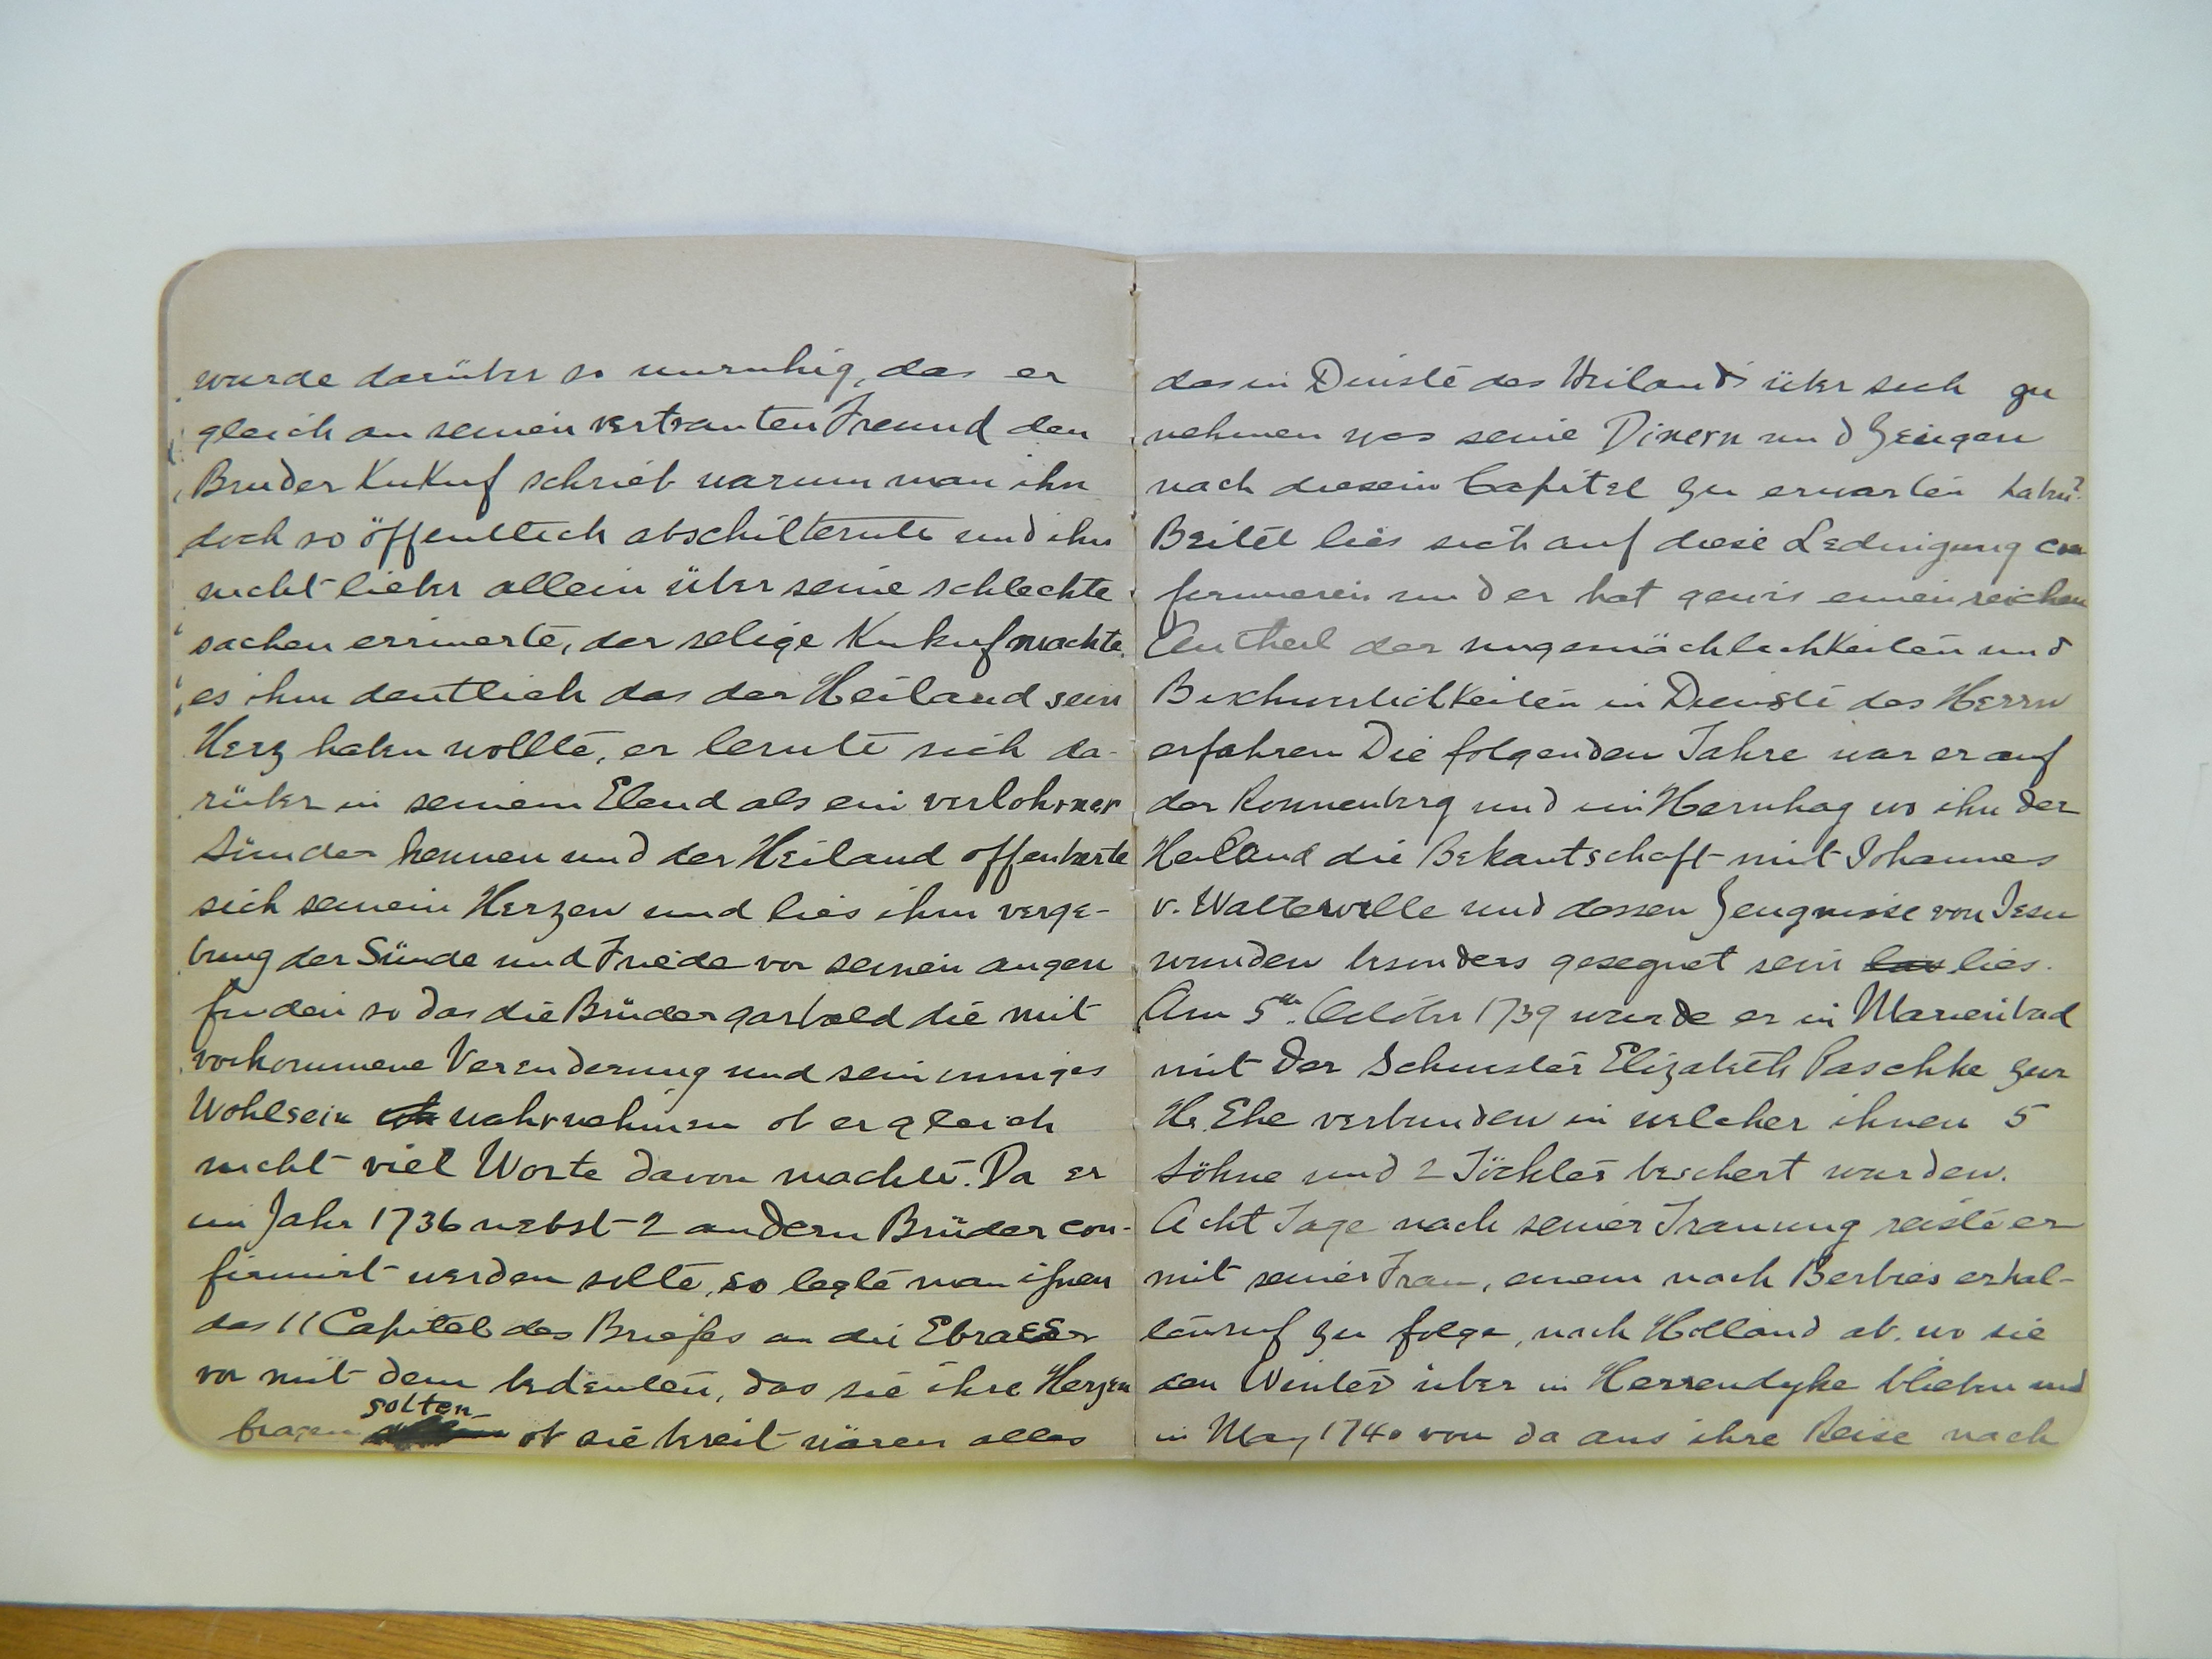 wurde darüber so unruhig, das er
gleich an seinen vertrauten Freund den
Bruder KuKuf schrieb warum man ihn
doch so öffentlich abschilternte und ihn
nicht lieber allein über seine schlechte
sachen errinerte, der selige Kukuf machte
es ihm deutlich das der Heiland sein
Herz haben wollte, er lernte sich da-
rüber in seinem Elend als ein verlohrner
Sünder kennen und der Heiland offenbarte
sich seinem Herzen und lies ihm verge-
bung der Sünde und Friede vor seinen augen
finden so das die Brüder garbald die mit
vorkommene Verenderung und sein inniges
Wohlsein wahrnehmen ob er gleich
nicht viel Worte davon machte. Da er
im Jahr 1736 nebst 2 andern Brüder con-
firmirt werden solte, so legte man ihnen
das 11 Capitel des Briefes an die Ebraeer
vor mit dem bedeuten, das sie ihre Herzen
fragen solten ob sie bereit wären alles
das in Dienste des Heilands über sich zu
nehmen was seine Dinern und Zeugen
nach diesem Capitel zu erwarten haben?
Beitel lies sich auf diese Bedingung con
firmieren und er hat gewis einen reichen
Antheil der ungemächlichKeiten und
BeschwerlichKeiten in Dienste des Herrn
erfahren Die folgenden Jahre war er auf
der Ronnenberg und in Hernhag wo ihn der
Heiland die Bekantschaft mit Johannes
v. Wattewille und dessen Zeugnisse von Jesu
wunden besonders gesegnet sein lies.
Am 5th October 1739 wurde er in Marienbad
mit der Schwester Elizabeth Paschke zur
H. Ehe verbunden in welcher ihnen 5
Söhne und 2 Töchter beschert wurden.
Acht Tage nach seiner Trauung reiste er
mit seiner Frau, einem nach Berbies erhal-
tenruf zu folge, nach Holland ab. wo sie
den Winter über in Herrendyke blieben und
in May 1740 von da aus ihre Reise nach